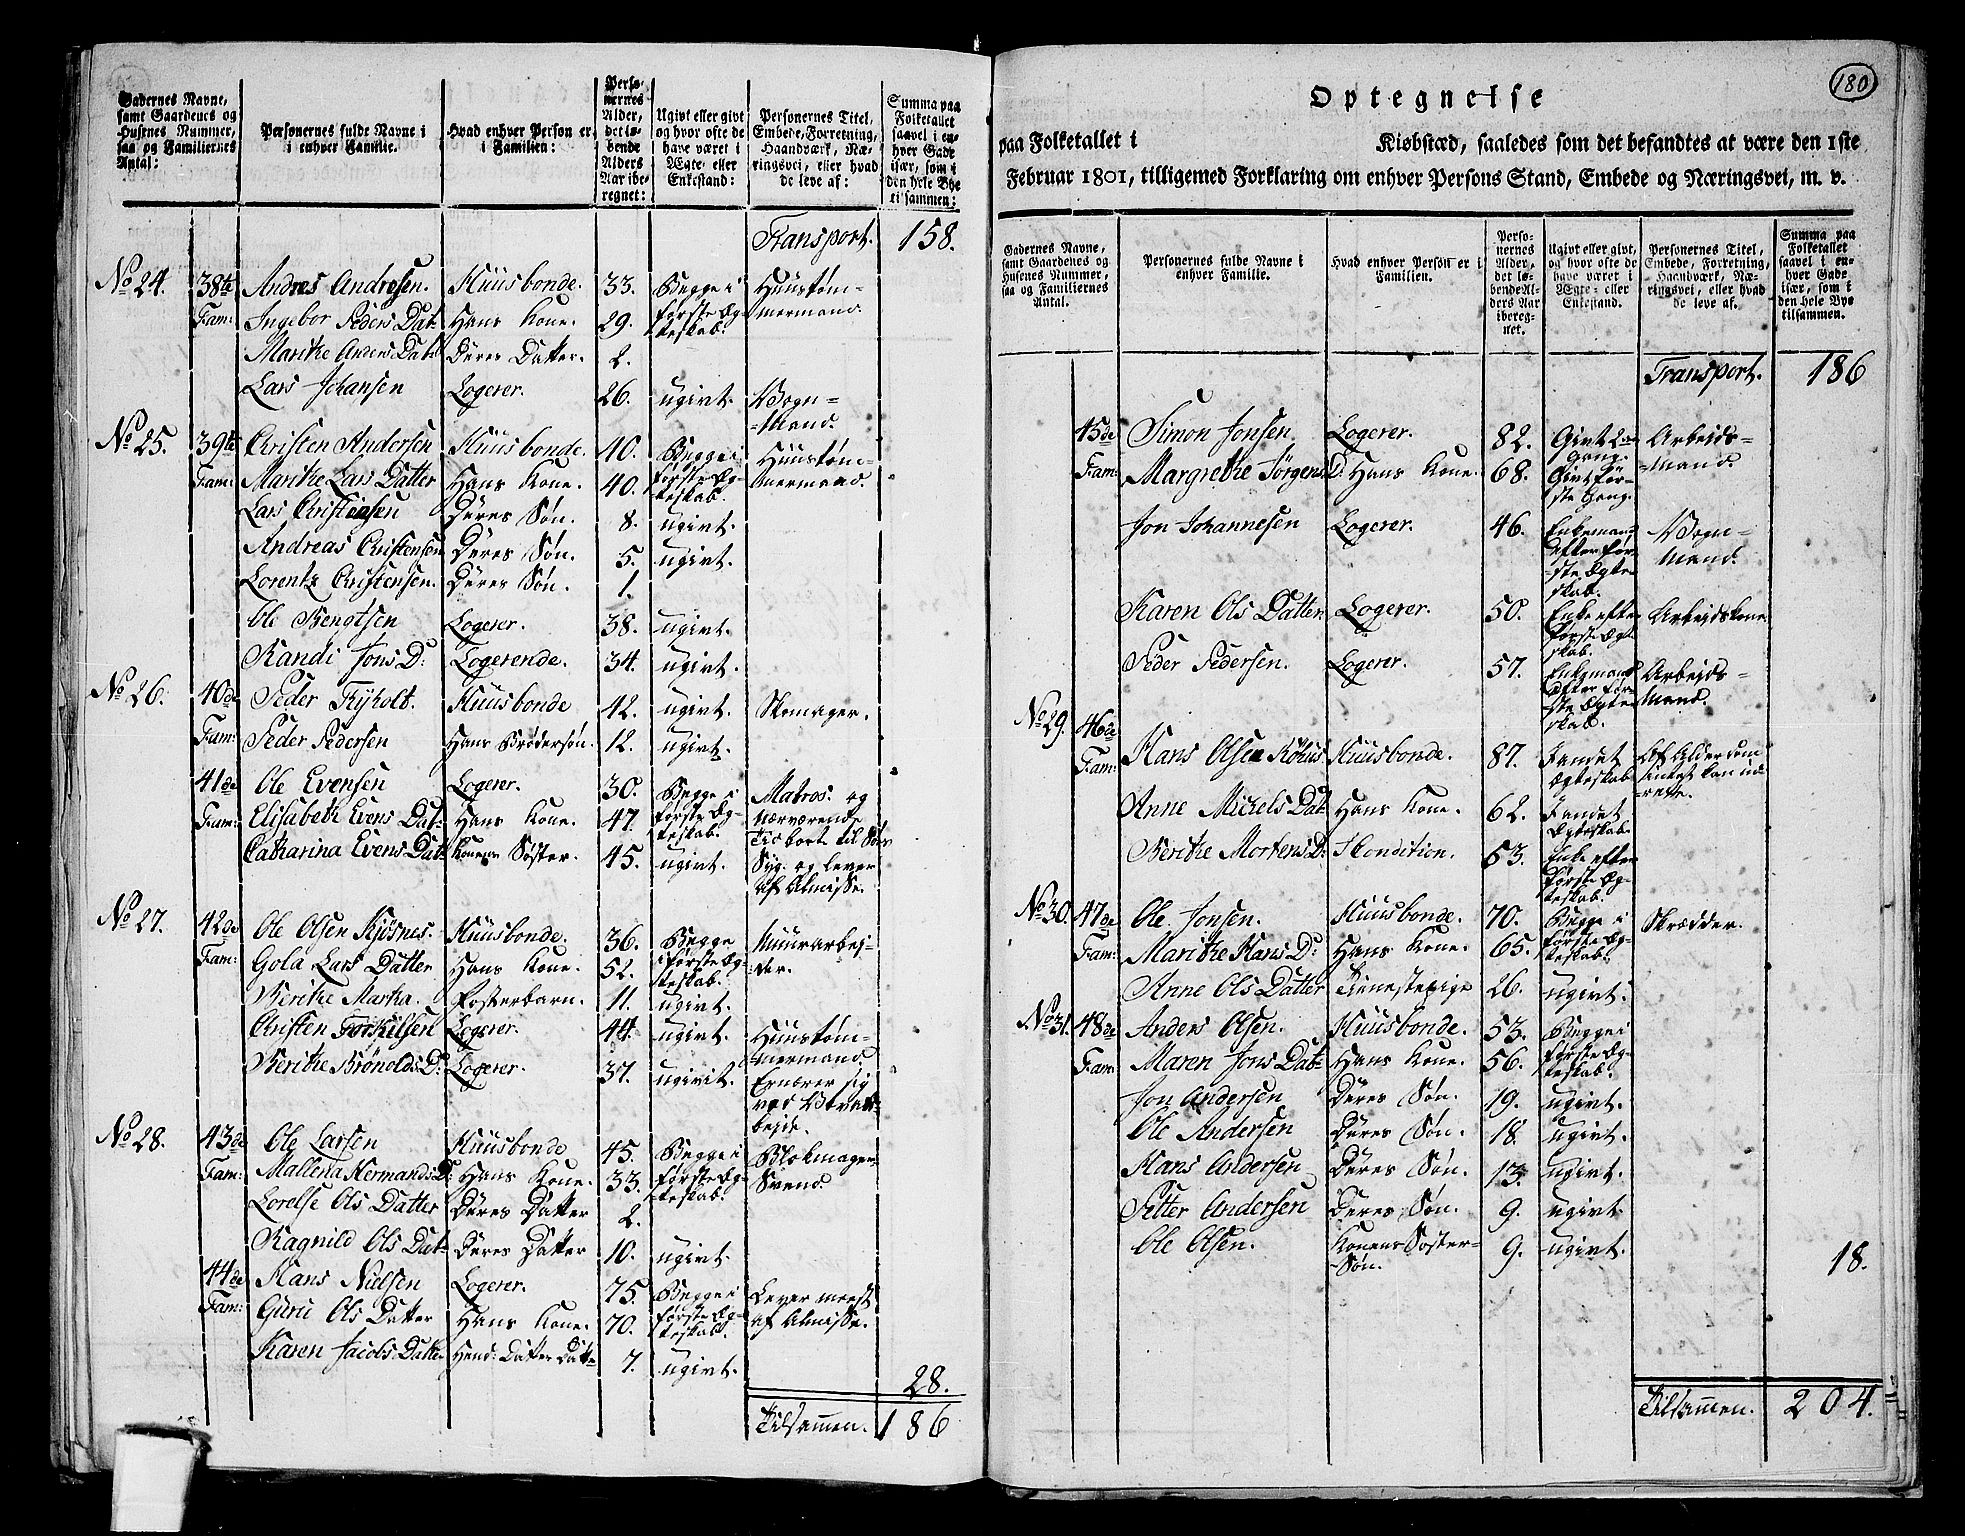 Gadernes Navne, samt Gaardenes og Husenes Nummer, saa og Familiernes Antal:
Personernes fulde Navne i enhver Familie.
Hvad enhver Person er i Familien:
Personernes Alder, det løbende Alders Aar iberegnet:
Ugivt eller givt og hvor ofte de have været i Ægte- eller Enkestand:
Personernes Titel, Embede, Forretning, Haandværk, Næringsvei, eller hvad de leve af:
Summa paa Folketallet saavel i enhver Gade især, som i den hele Bye tilsammen:
Transport. 158.
No 24. 38te Fam: Andres Andresen. Huusbonde. 33. Begge i første Ægteskab. Huustømmermand.
Ingebor Peders Dat. Hans Kone. 29.
Marithe Anders Dat. Deres Datter. 2.
Lars Johansen Logerer. 26. ugivt. Vognmand.
No 25. 39te Fam: Christen Andersen Huusbonde. 40. Begge i første Ægteskab. Huustømmermand
Marithe Lars Datter Hans Kone. 40.
Lars Christensen Deres Søn. 8. ugivt.
Andreas Christensen Deres Søn. 5. ugivt.
Lorentz Christensen. Deres Søn. 1.
Ole Bengtsen Logerer. 38. ugivt.
Randi Jons D: Logerende. 34. ugivt.
No 26. 40de Fam: Peder Fryholt. Huusbonde 42. ugivt. Skomager.
Peder Pedersen Hans Brødersøn. 12. ugivt.
41de Fam: Ole Evensen Logerer. 30. Begge i første Ægteskab. Matros. og nærværende Tid borte til Søes
Elisabeth Evens Dat. Hans Kone. 47.
Catharina Evens Dat. Konens Søster. 45. ugivt. Syg. og lever af Almisse.
No 27. 42de Fam: Ole Olsen Kjøsnes. Huusbonde. 36. Begge i første Ægteskab. Muurarbeider.
Gola Lars Datter Hans Kone. 52.
Berithe Martha. Fosterbarn. 11. ugivt.
Christen Torkilsen Logerer. 44. ugivt. Huustømmermand
Berithe Brønolds D: Logerer. 37. ugivt. Ernærer sig ved
No 28. 43de Fam: Ole Larsen Huusbonde 45. Begge i første Ægteskab. Blokmager Svend.
Mallena Hermands D: Hans Kone. 33.
Lorelse Ols Datter Deres Datter 2.
Ragnild Ols Dat. Deres Datter 10. ugivt.
44de Fam: Hans Nielsen Logerer. 75. Begge i første Ægteskab. Lever meest af Almisse.
Guru Ols Datter Hans Kone. 70.
Karen Jacobs Datter 7. ugivt.
28.
Tilsammen. 186
180
Optegnelse
paa Folketallet i Kiøbstæd, saaledes som det befandtes at være den 1ste
Februar 1801, tilligemed Forklaring om enhver Persons Stand, Embede og Næringsvei, m. v.
Gadernes Navne, samt Gaardenes og Husenes Nummer, saa og Familiernes Antal.
Personernes fulde Navne i enhver Familie.
Hvad enhver Person er i Familien.
Personernes Alder, det løbende Alders Aar iberegnet.
Ugivt eller givt, og hvor ofte de have været i Ægte- eller Enkestand.
Personernes Titel, Embede, Forretning, Haandværk, Næringsvei, eller hvad de leve af.
Summa paa Folketallet saavel i enhver Gade især, som i den hele Bye tilsammen.
Transport. 186
45de Fam: Simon Jonsen Logerer. 82. Givt 2den Gang. Arbeidsmand.
Margrethe Jørgens D: Hans Kone. 68. Givt første Gang.
Jon Johannesen Logerer. 46. Enkemand efter første Ægteskab. Vognmand.
Karen Ols Datter Logerer. 50. Enke efter første Ægteskab. Arbeidskone.
Peder Pedersen. Logerer. 57. Enkemand efter første Ægteskab. Arbeidsmand.
No 29. 46de Fam: Hans Olsen Huusbonde. 87. I andet Ægteskab. Af Alderdom intet kan udrette.
Anne Michels Dat. Hans Kone. 62. I andet Ægteskab.
Berithe Mortens D: I Condition. 53. Enke efter første Ægteskab.
No 30. 47de Fam: Ole Jonsen. Huusbonde. 70. Begge i første Ægteskab. Skrædder.
Marithe Hans D: Hans Kone. 65.
Anne Ols Datter Tienestepige 26. ugivt.
No 31. 48de Fam: Anders Olsen. Huusbonde. 53. Begge i første Ægteskab.
Maren Jons Dat. Hans Kone. 56.
Jon Andersen Deres Søn. 19. ugivt.
Ole Andersen Deres Søn. 18. ugivt.
Hans Andersen Deres Søn. 13. ugivt.
Petter Andersen Deres Søn. 9. ugivt.
Ole Olsen. Konens Søster-Søn. 9. ugivt.
18.
Tilsammen. 204.